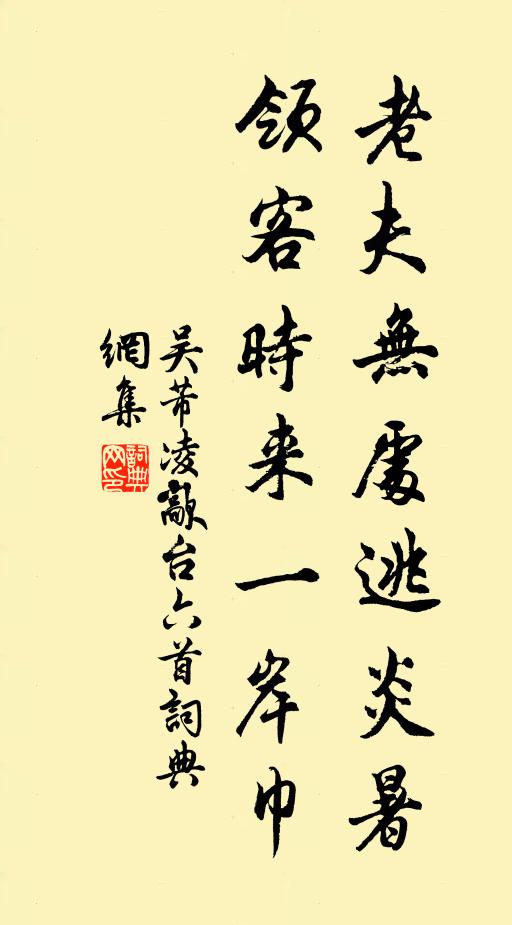 老夫無處逃炎暑
領客時来一岸巾
吴芾凌歊台六首詞典
網集
詞典網印